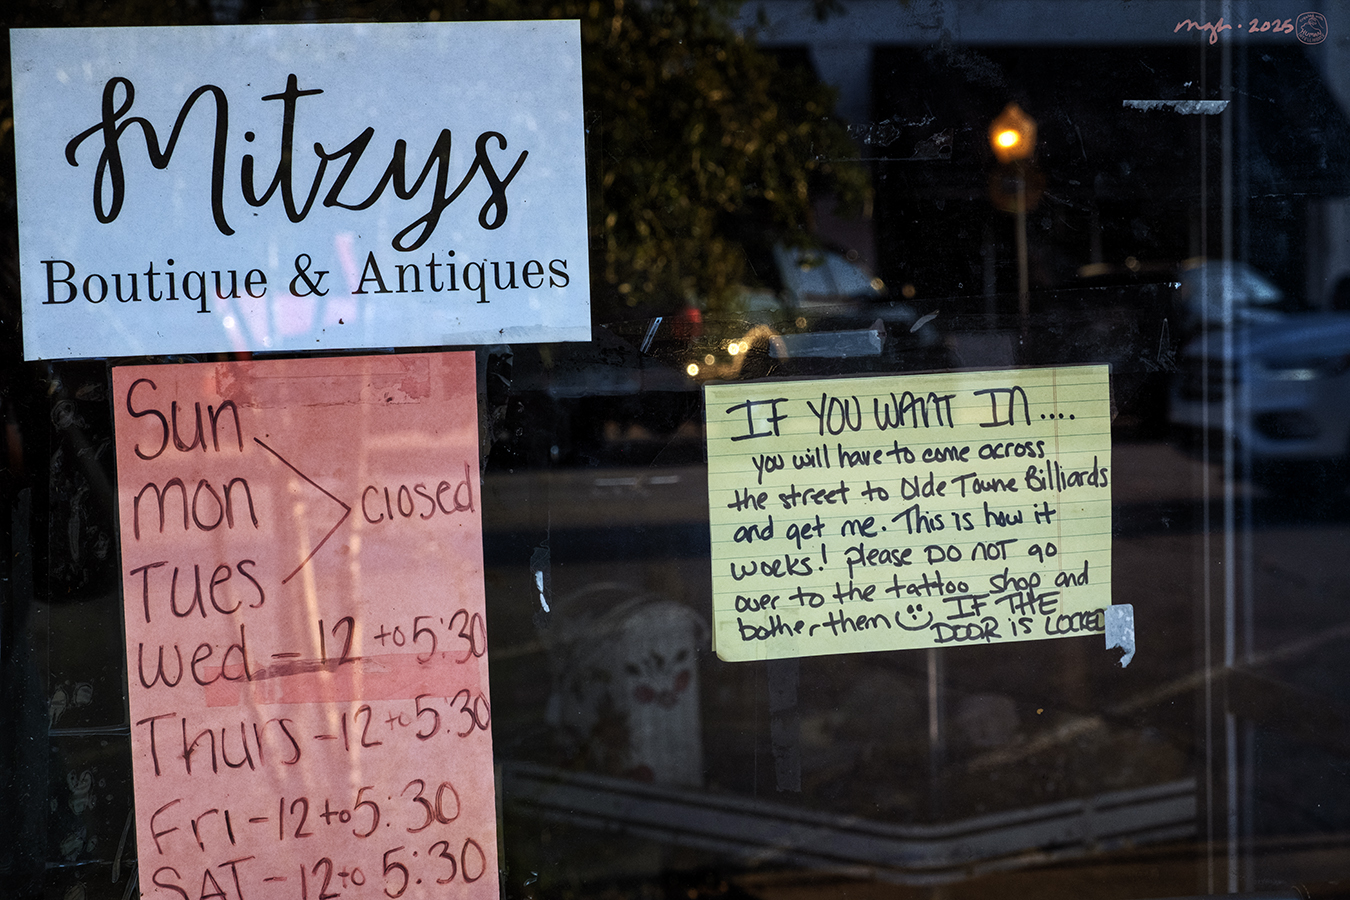 Mitzys
Boutique & Antiques
Sun
mon closed
Tues
wed - 12 to 5:30
Thurs - 12 to 5:30
Fri - 12 to 5:30
SAT - 12 to 5:30
IF YOU WANT IN....
you will have to come across
the street to Olde Towne Billiards
and get me. This is how it
works! please DO NOT go
over to the tattoo shop and
bother them IF THE
DOOR is LOCKED
mgh · 2025